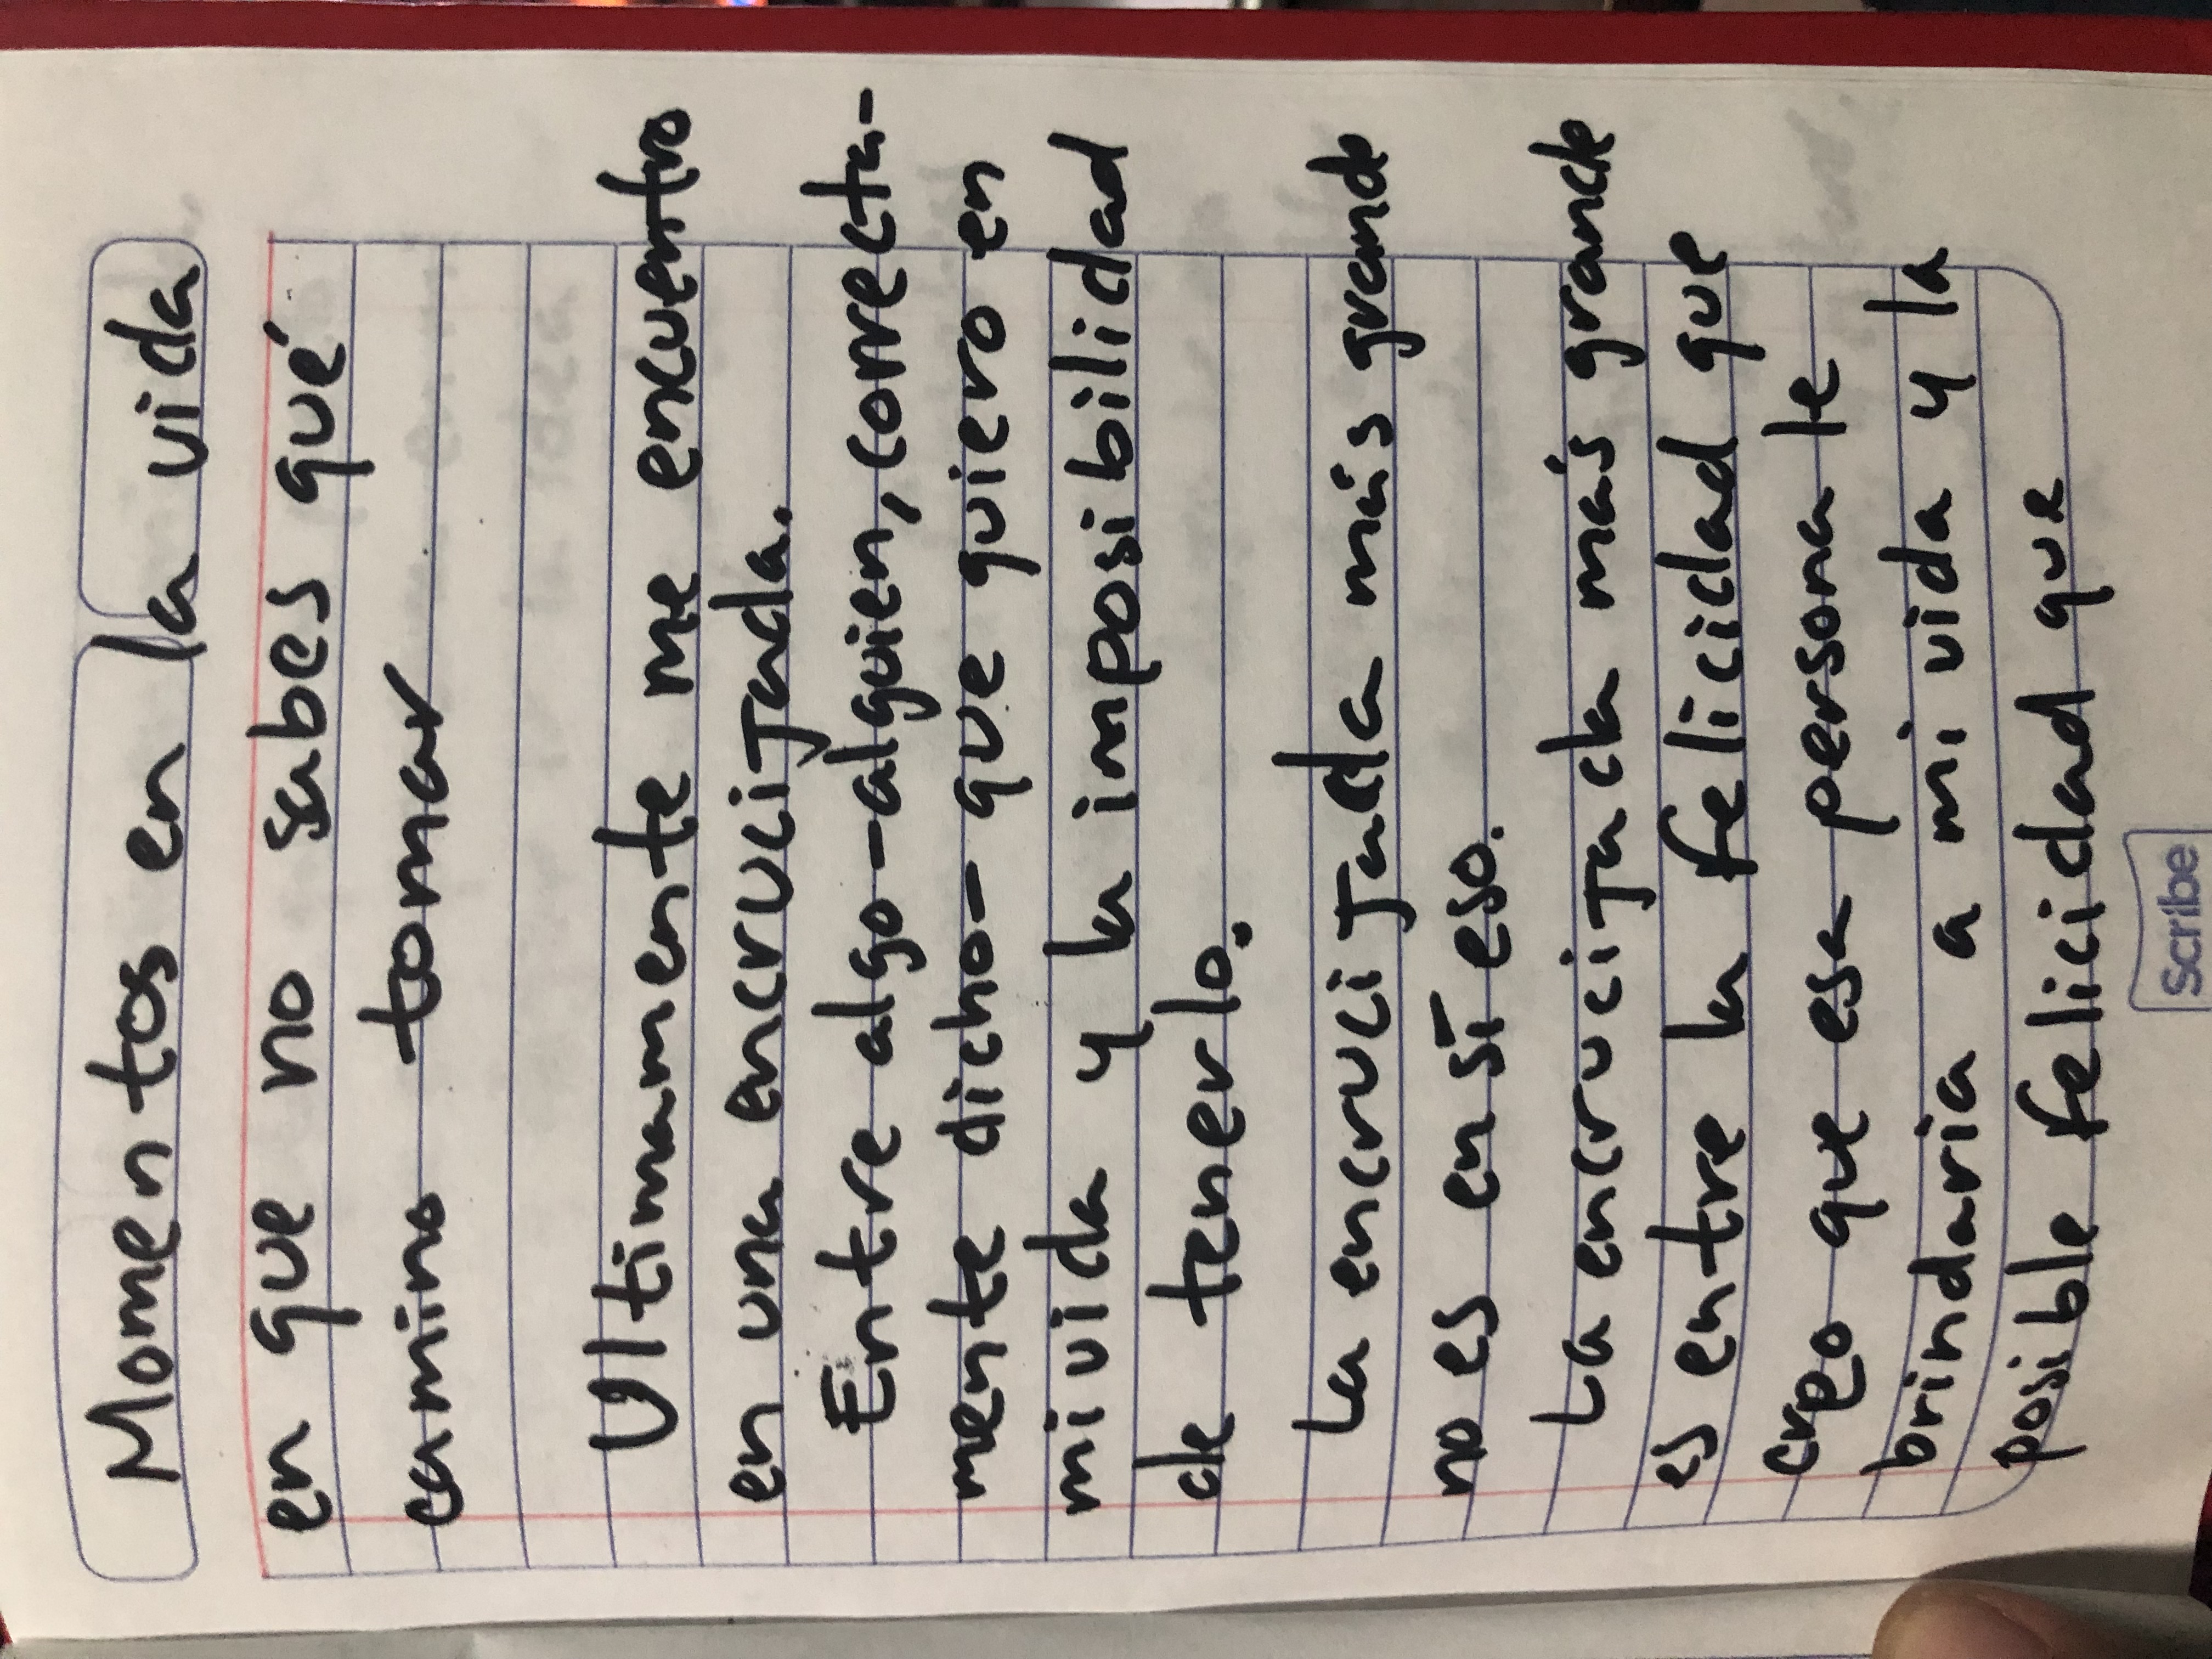 Momentos en la vida
en que no sabes qué
camino tomar
Ultimamente me encuentro
en una encrucijada.
Entre algo-alguien, correcta-
mente dicho- que quiero en
mi vida y la imposibilidad
de tenerlo.
La encrucijada más grande
no es en sí eso.
La encrucijada más grande
es entre la felicidad que
creo que esa persona le
brindaria a mi vida y la
posible felicidad que
Scribe